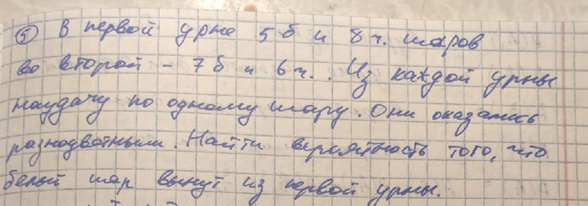 ⑤ В первой урне 5 б и 8 ч. шаров
во второй - 7 б и 6 ч.. Из каждой урны
наудачу по одному шару. Они оказались
разноцветными. Найти вероятность того, что
белый шар вынут из первой урны.